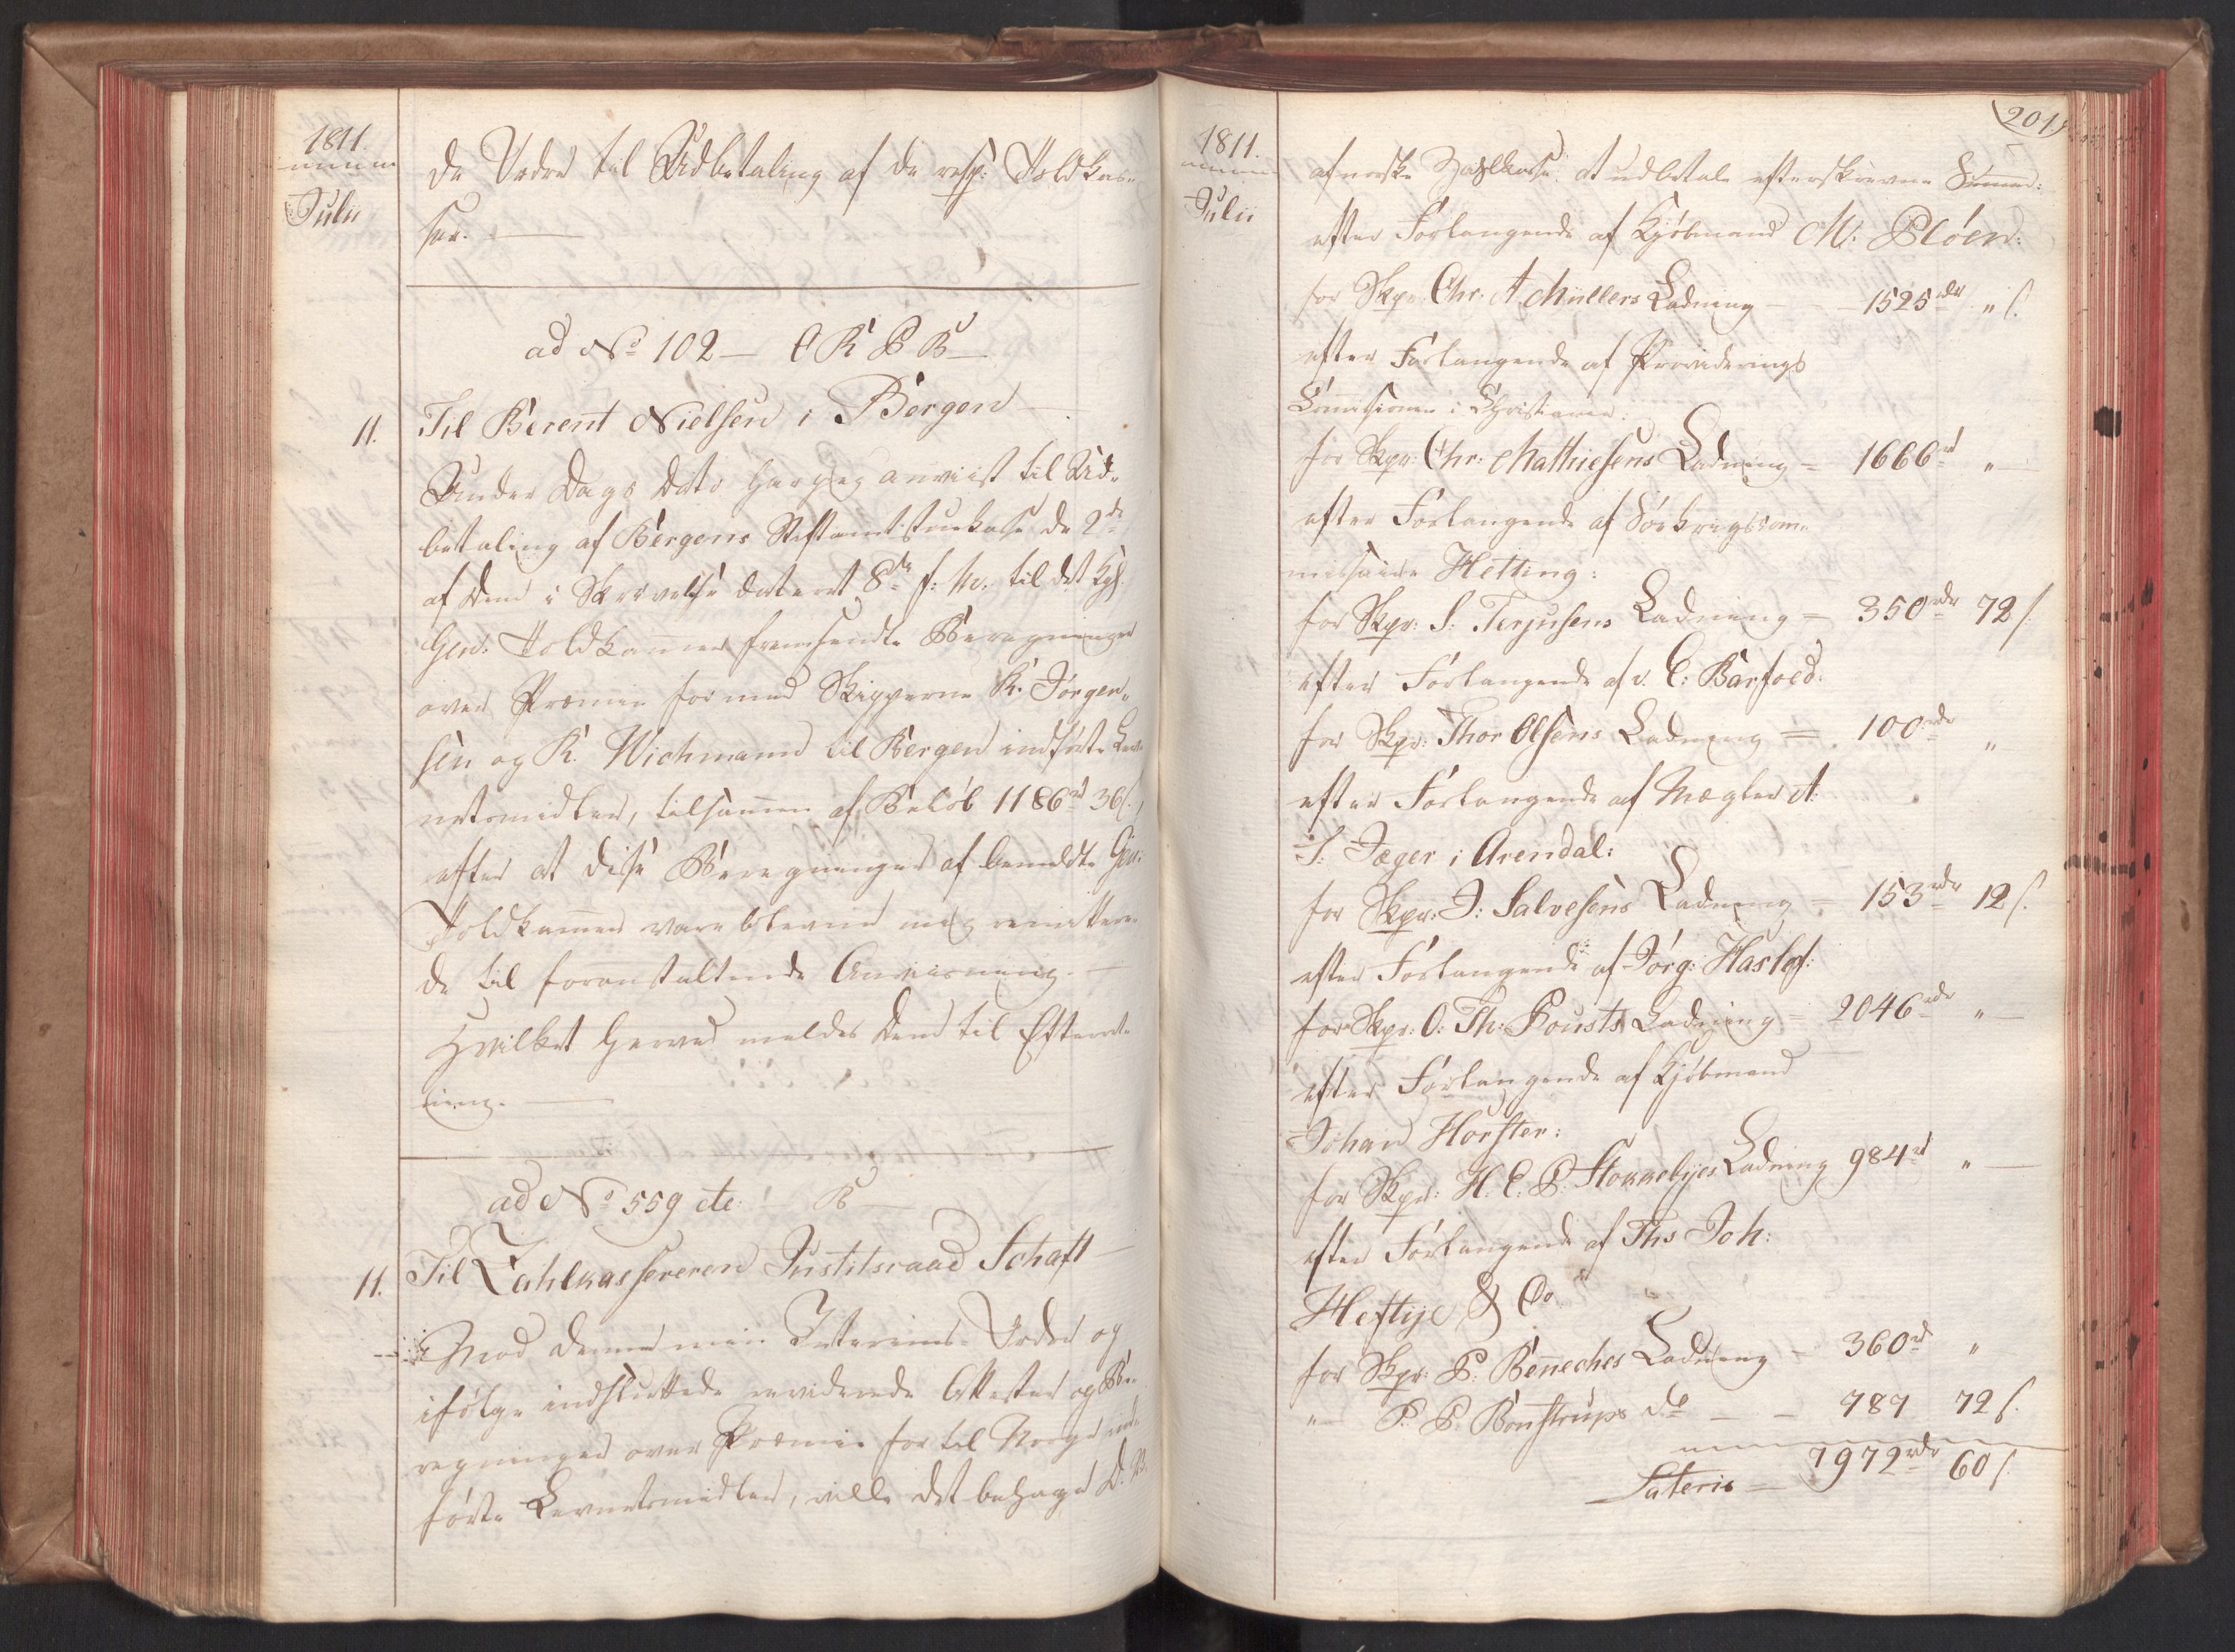 1811.
Julii
de Ordre til Udbetaling af de resp: Toldkas-
ser.
ad No 102 — C K P B —
11. Til Berent Nielsen i Bergen —
Under Dags Dato har jeg anviist til Ud-
betaling af Bergens Stiftamtstuekasse de 2de
af Dem i Skrivelse dateret 8de f: M. til det Kgl.
Gen: Toldkammer fremsendte Beregninger
over Præmie for med Skipperne K. Jörgen-
sen og K. Wichmann til Bergen indførte Lev-
netsmidler, tilsammen af Beløb 1186rd 36 s,
efter at disse Beregninger af bemeldte Gen:
Toldkammer vare blevne mig remittere-
de til foranstaltende Anviisning. —
Hvilket herved meldes Dem til Efterret-
ning. —
ad No 559 etc. B —
11. Til Zahlkassereren Justitsraad Schaft —
Mod denne min Interims-Ordre og
ifølge indsluttede reviderede Attester og Be-
regninger over Præmie for til Norge ind-
førte Levnetsmidler, ville det behage D. V.
201.
1811.
Julii
af norske Zahlkasse at udbetale efterskrevne Summer:
efter Forlangende af Kjöbmand M: Plöen:
for Skpr. Chr. A Müllers Ladning — 1525rdr " s.
efter Forlangende af Provideerings
Commissionen i Christiania:
for Skpr: Chr: Mathiesens Ladning = 1666rd " —
efter Forlangende af Söekrigscom-
missair Hetting:
for Skpr: S. Terjusens Ladning = 350rdr 72 s.
efter Forlangende af v. C: Barfoed:
for Skpr: Thor Olsens Ladning = 100rdr "
efter Forlangende af Mægler A:
S: Jæger i Arendal:
for Skpr: J: Salvesens Ladning = 153rdr 12 s.
efter Forlangende af Jörg: Haslef:
for Skpr: O: Th: Pousts Ladning = 2046rdr " —
efter Forlangende af Kjöbmand
Johan Horster:
for Skpr: H. C. P. Stokkebyes Ladning 984rd " —
efter Forlangende af Ths Joh:
Heftye & Co.
for Skpr: P. Benneches Ladning — 360rd "
" — P. P. Bonstrups do — — 787 72 s.
Lateris — 7972rdr 60 s.